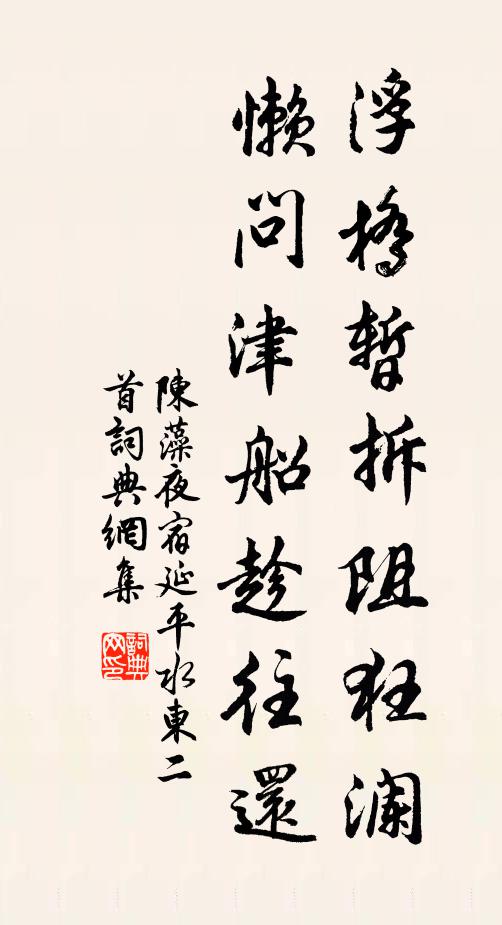 浮橋暫拆阻狂瀾
懶問津船趁往還
陳藻夜宿延平水東二
首詞典網集
詞典网印